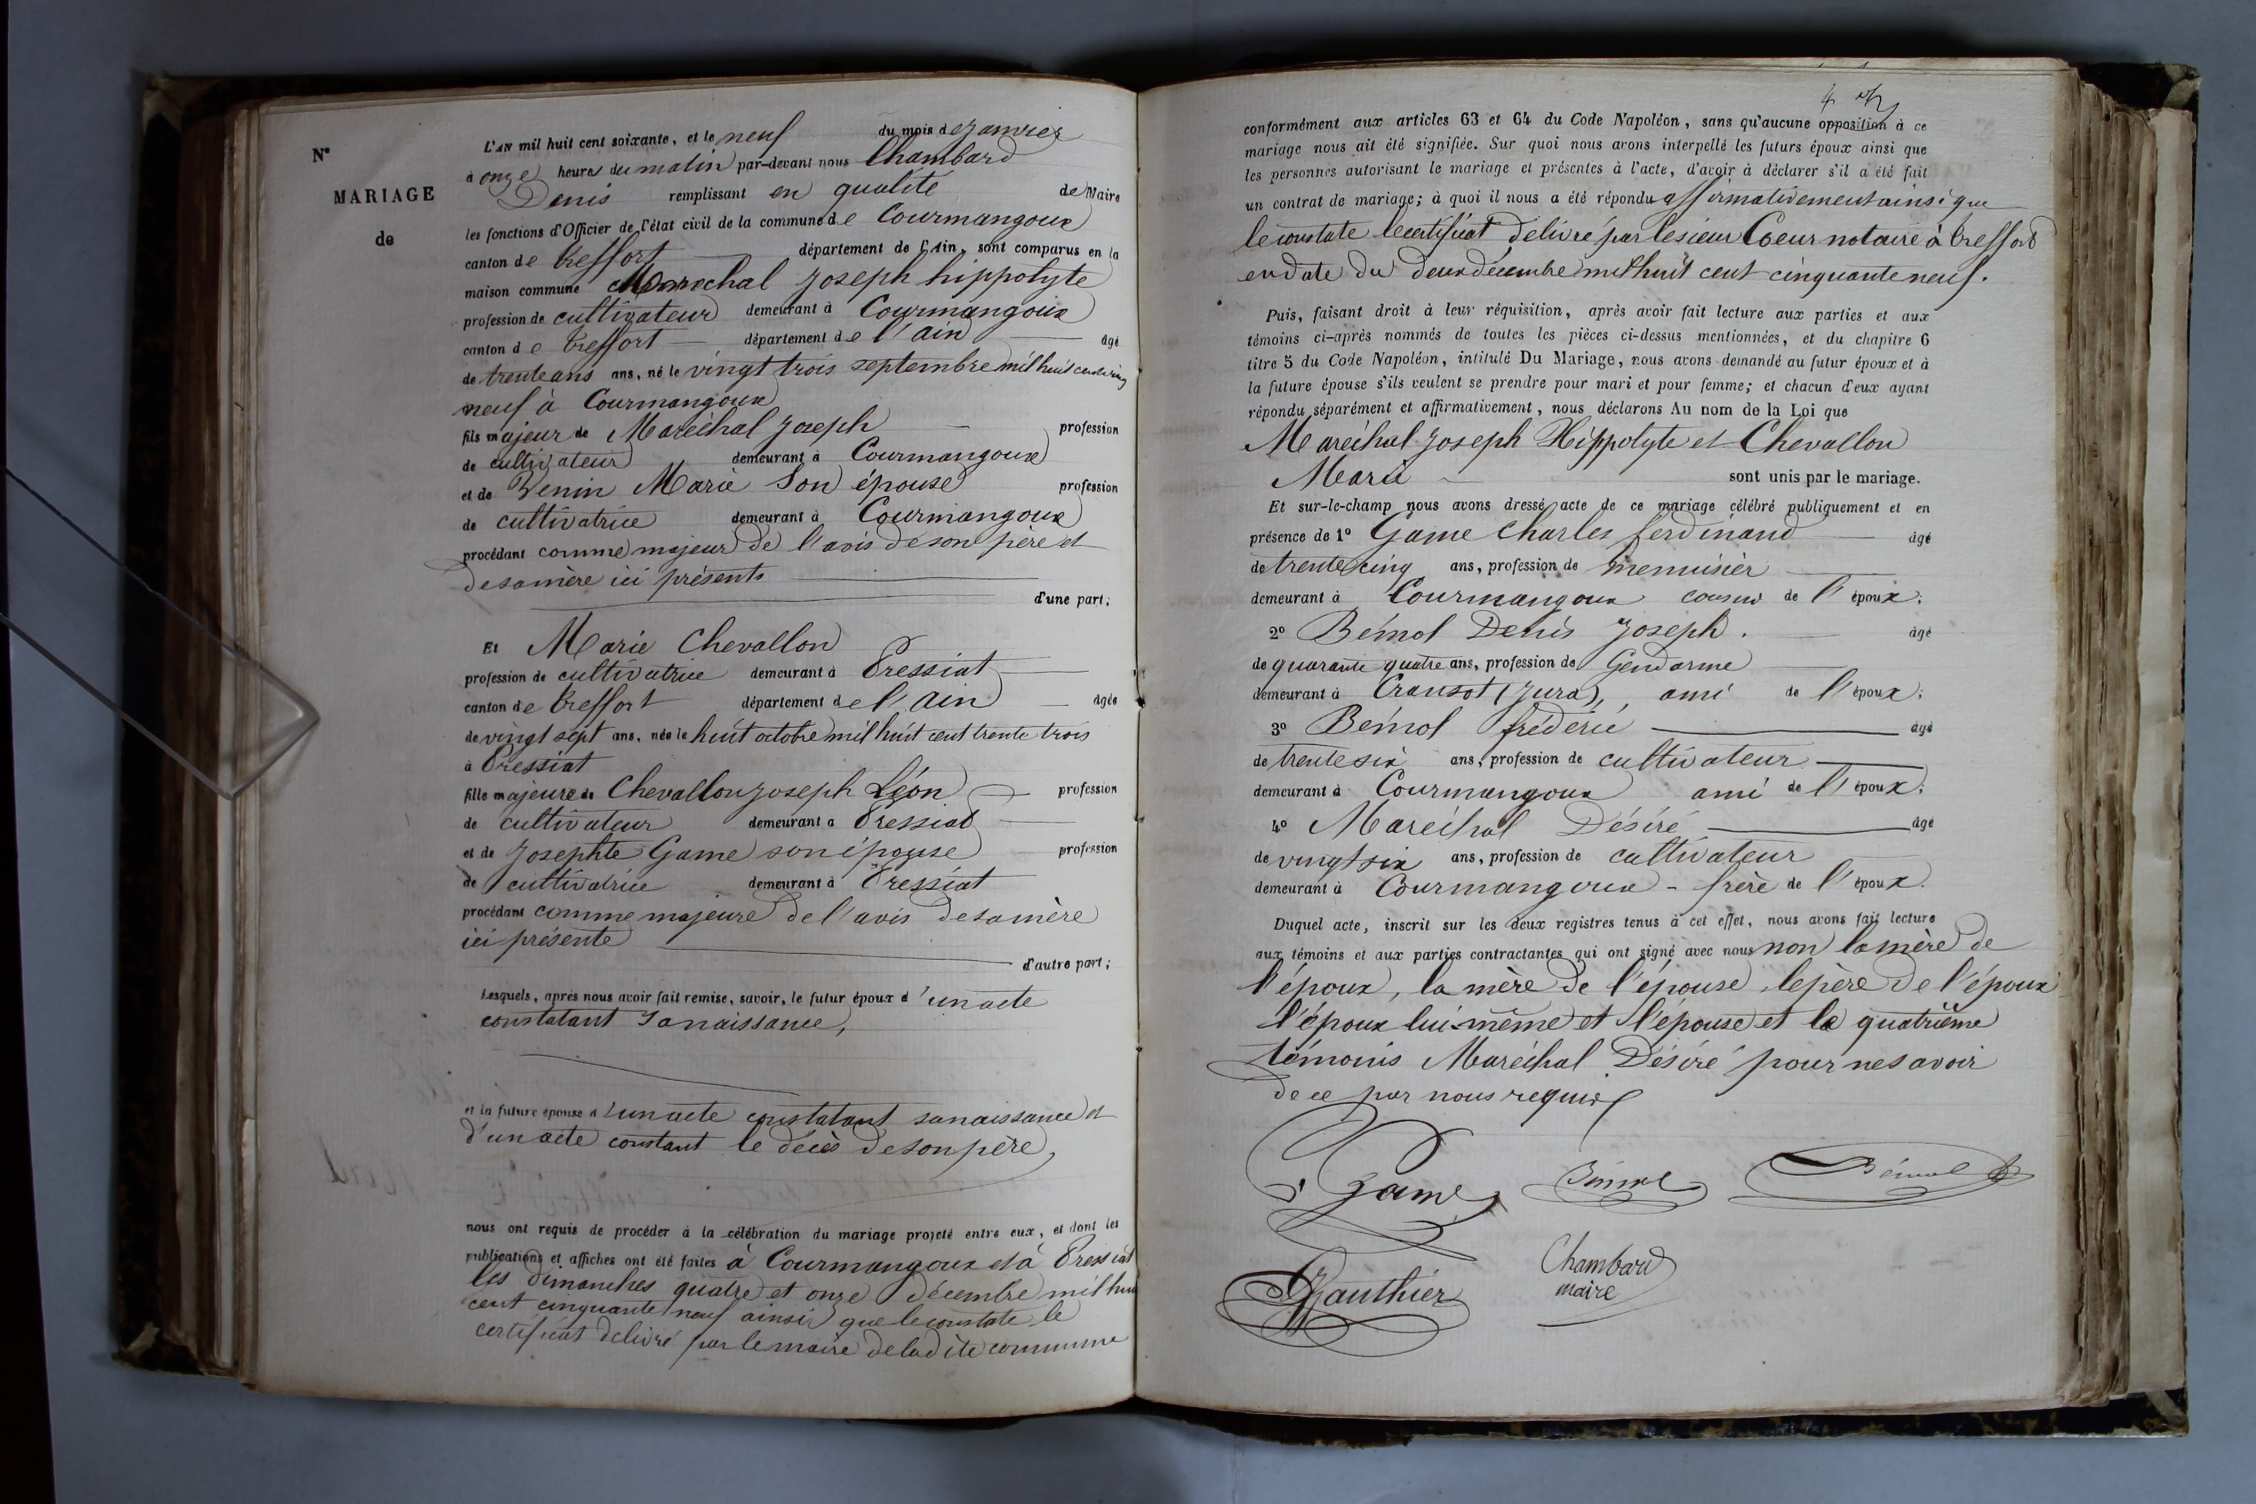 N°
MARIAGE
de
L'AN mil huit cent soixante, et le neuf du mois de janvier
à onze heures du matin par-devant nous Chambard
Denis remplissant en qualité de Maire
les fonctions d'Officier de l'état civil de la commune de Courmangoux
canton de treffort département de l'Ain, sont comparus en la
maison commune Marechal joseph hippolyte
profession de cultivateur demeurant à Courmangoux
canton de treffort département de l'ain âgé
de trente ans ans, né le vingt trois septembre mil huit cent vingt
neuf à Courmangoux
fils majeur de Maréchal joseph profession
de cultivateur demeurant à Courmangoux
et de Venin Marie Son épouse profession
de cultivatrice demeurant à Courmangoux
procédant comme majeur de l'avis de son père et
de sa mère ici présents
d'une part;
Et Marie Chevallon
profession de cultivatrice demeurant à Pressiat
canton de treffort département de l'Ain âgée
de vingt sept ans, née le huit octobre mil huit cent trente trois
à Pressiat
fille majeure de Chevallon joseph Léon profession
de cultivateur demeurant a Pressiat
et de josephte Game son épouse profession
de cultivatrice demeurant à Pressiat
procédant comme majeure de l'avis de sa mère
ici présente
d'autre part;
Lesquels, après nous avoir fait remise, savoir, le futur époux d'un acte
constatant sa naissance,
et la future épouse d'un acte constatant sa naissance et
d'un acte constant le décès de son père,
nous ont requis de procéder à la célébration du mariage projeté entre eux, et dont les
publications et affiches ont été faites à Courmangoux et à Pressiat
les dimanches quatre et onze décembre mil huit
cent cinquante neuf ainsi que le constate le
certificat delivré par le maire de la dite commune
4
conformément aux articles 63 et 64 du Code Napoléon, sans qu'aucune opposition à ce
mariage nous ait été signifiée. Sur quoi nous avons interpellé les futurs époux ainsi que
les personnes autorisant le mariage et présentes à l'acte, d'avoir à déclarer s'il a été fait
un contrat de mariage; à quoi il nous a été répondu affirmativement ainsi que
le constate le certificat délivré par le sieur Coeur notaire à treffort
en date du deux décembre mil huit cent cinquante neuf.
Puis, faisant droit à leur réquisition, après avoir fait lecture aux parties et aux
témoins ci-après nommés de toutes les pièces ci-dessus mentionnées, et du chapitre 6
titre 5 du Code Napoléon, intitulé Du Mariage, nous avons demandé au futur époux et à
la future épouse s'ils veulent se prendre pour mari et pour femme; et chacun d'eux ayant
répondu séparément et affirmativement, nous déclarons Au nom de la Loi que
Maréchal joseph Hippolyte et Chevallon
Marie sont unis par le mariage.
Et sur-le-champ nous avons dressé acte de ce mariage célébré publiquement et en
présence de 1° Game Charles ferdinand âgé
de trente cinq ans, profession de menuisier
demeurant à Courmangoux cousin de l'époux;
2° Bémol Denis joseph. âgé
de quarante quatre ans, profession de Gendarme
demeurant à Cransot (jura), ami de l'époux;
3° Bémol fréderic âgé
de trente six ans, profession de cultivateur
demeurant à Courmangoux ami de l'époux;
4° Maréchal Désiré âgé
de vingt six ans, profession de cultivateur
demeurant à Courmangoux - frère de l'époux.
Duquel acte, inscrit sur les deux registres tenus à cet effet, nous avons fait lecture
aux témoins et aux parties contractantes qui ont signé avec nous non la mère de
l'époux, la mère de l'épouse, le père de l'époux
l'époux lui-même et l'épouse et le quatrième
témoins Maréchal Désiré pour ne savoir
de ce par nous requis
Game
Bémol
Bémol
Gauthier
Chambard
maire